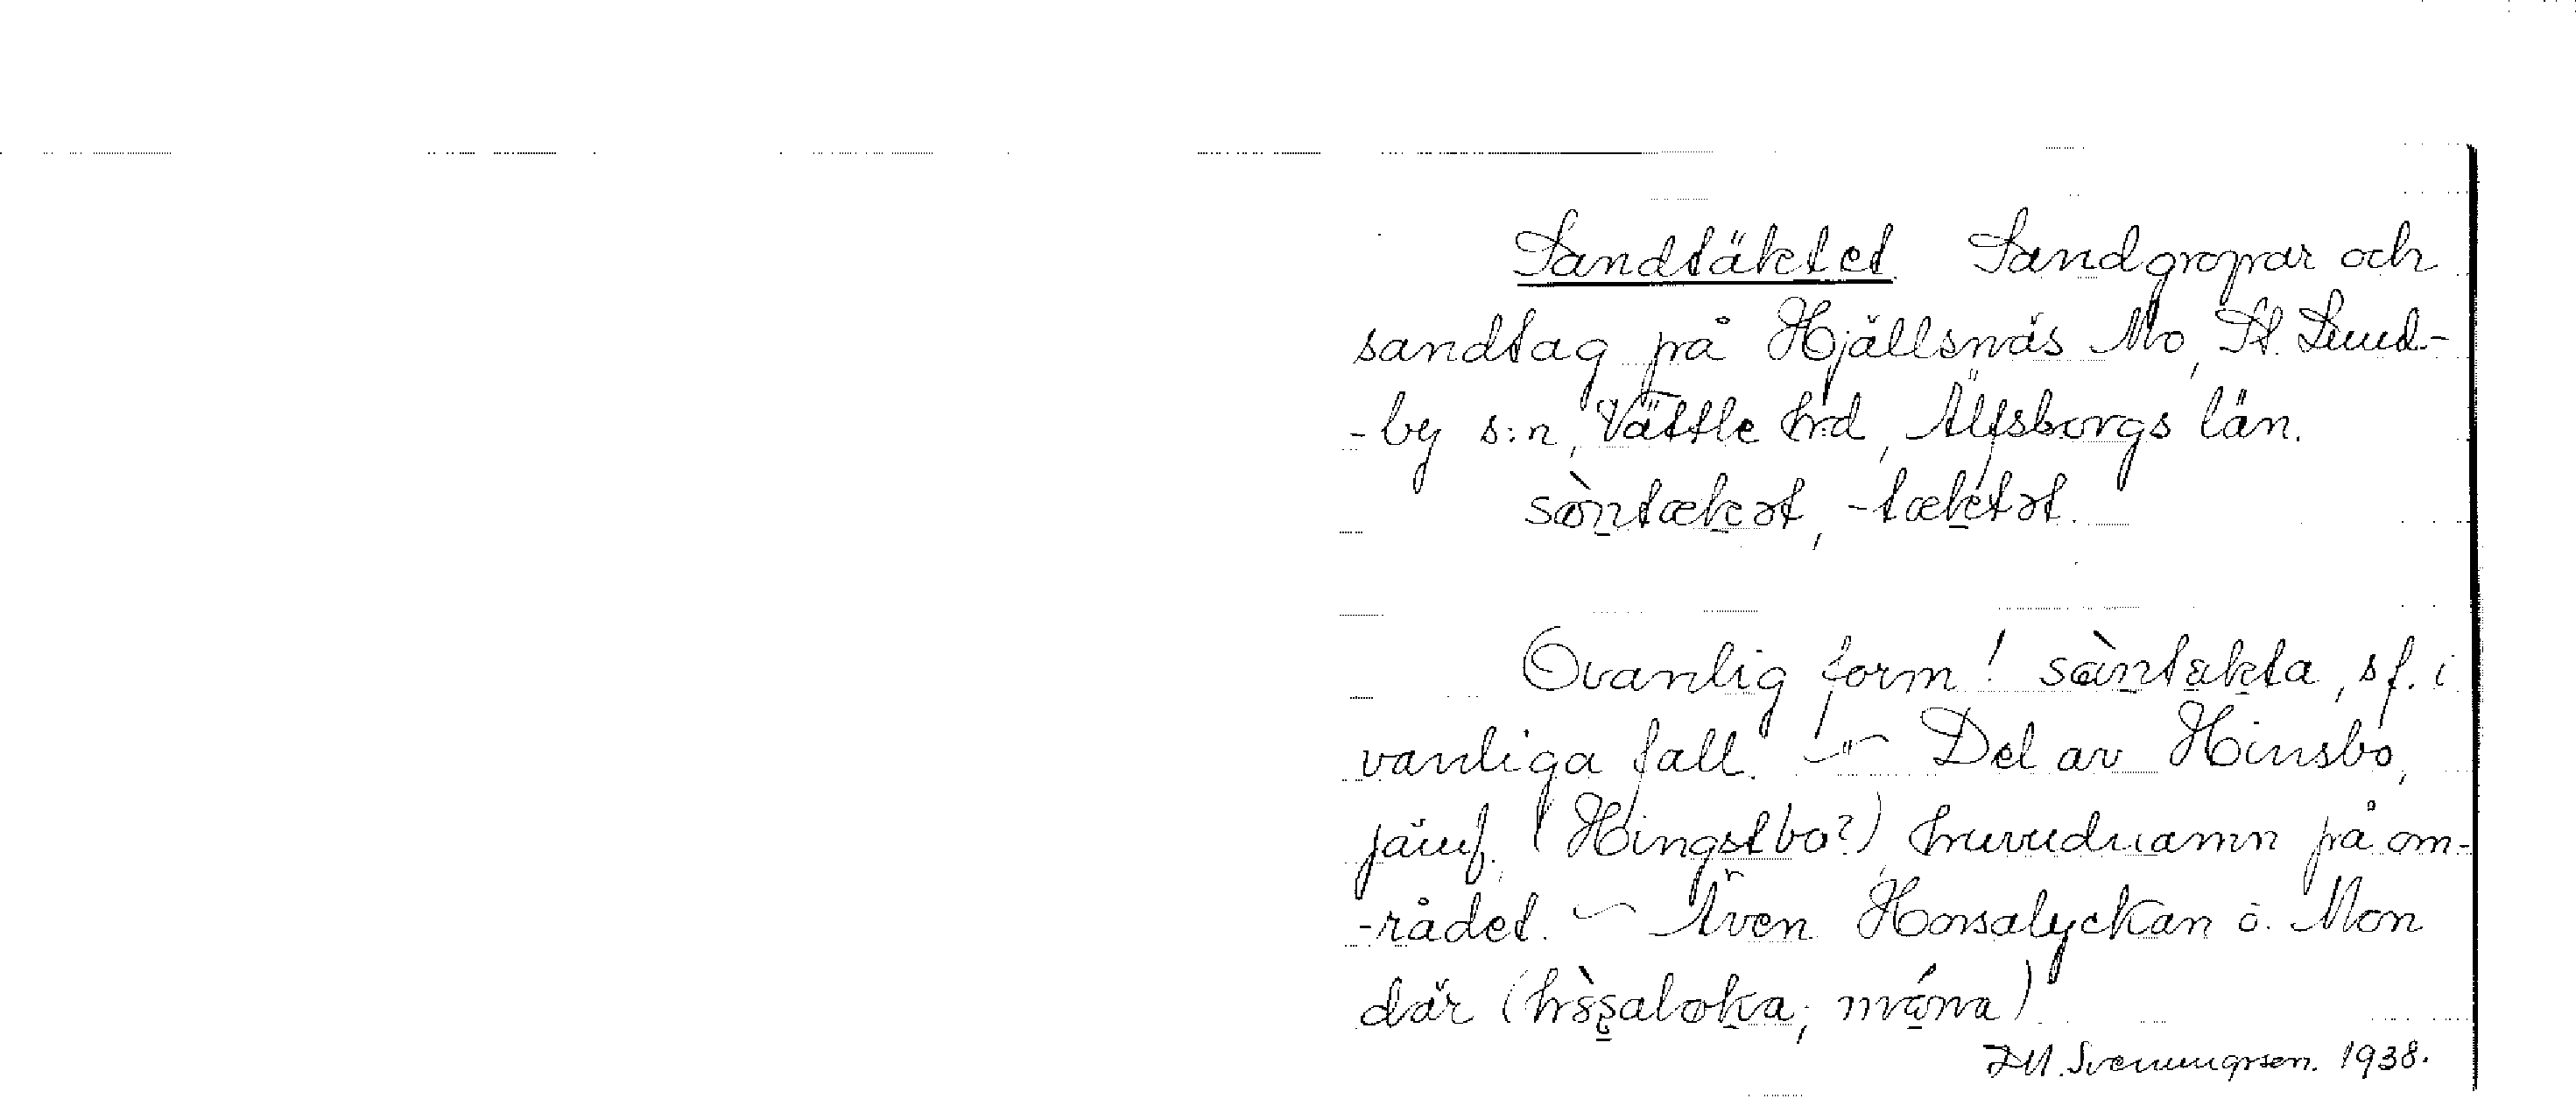 Sandtäktet. Sandgropar och
sandtag på Hjällsnäs Mo, St. Lund-
-by s:n, Vättle hrd, Älfsborgs län.
sàntækət, -tæktət.
Ovanlig form! sàntækta, sf. i
vanliga fall. — Del av Hinsbo,
jämf. (Hingstbo?), huvudnamn på om-
-rådet. — Även Horsalyckan ö. Mon
där (hs̀saloka; móna)
Svenungsson. 1938.